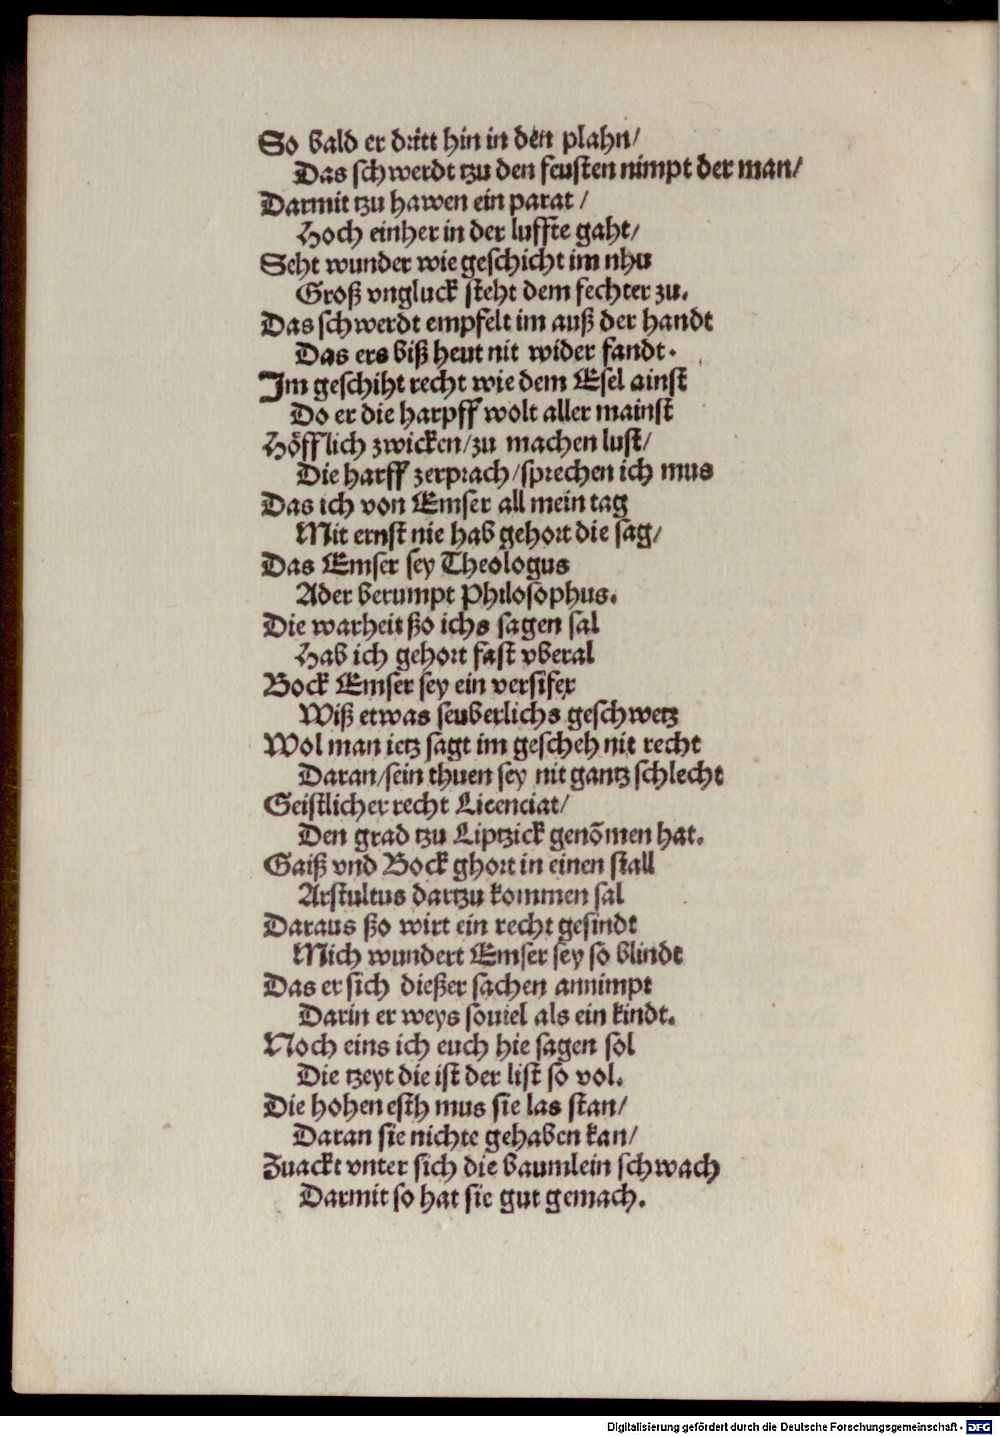 So bald er dritt hin in den plahn/
Das schwerdt tzu den feusten nimpt der man/
Darmit tzu hawen ein parat /
Hoch einher in der luffte gaht/
Seht wunder wie geschicht im nhu
Groß vngluck steht dem fechter zu.
Das schwerdt empfelt im auß der handt
Das ers biß heut nit wider fandt.
Im geschiht recht wie dem Esel ainst
Do er die harpff wolt aller mainst
Höfflich zwicken/zu machen lust/
Die harff zerprach/sprechen ich mus
Das ich von Emser all mein tag
Mit ernst nie hab gehort die sag/
Das Emser sey Theologus
Ader berumpt Philosophus.
Die warheit ßo ichs sagen sal
Hab ich gehort fast vberal
Bock Emser sey ein versifex
Wiß etwas seuberlichs geschwetz
Wol man ietz sagt im gescheh nit recht
Daran/sein thuen sey nit gantz schlecht
Geistlicher recht Licenciat/
Den grad tzu Liptzick genõmen hat.
Gaiß vnd Bock ghort in einen stall
Arstultus dartzu kommen sal
Daraus ßo wirt ein recht gesindt
Mich wundert Emser sey so blindt
Das er sich dießer sachen annimpt
Darin er weys souiel als ein kindt.
Noch eins ich euch hie sagen sol
Die tzeyt die ist der list so vol.
Die hohen esth mus sie las stan/
Daran sie nichte gehaben kan/
Zuackt vnter sich die baumlein schwach
Darmit so hat sie gut gemach.
Digitalisierung gefördert durch die Deutsche Forschungsgemeinschaft - DFG